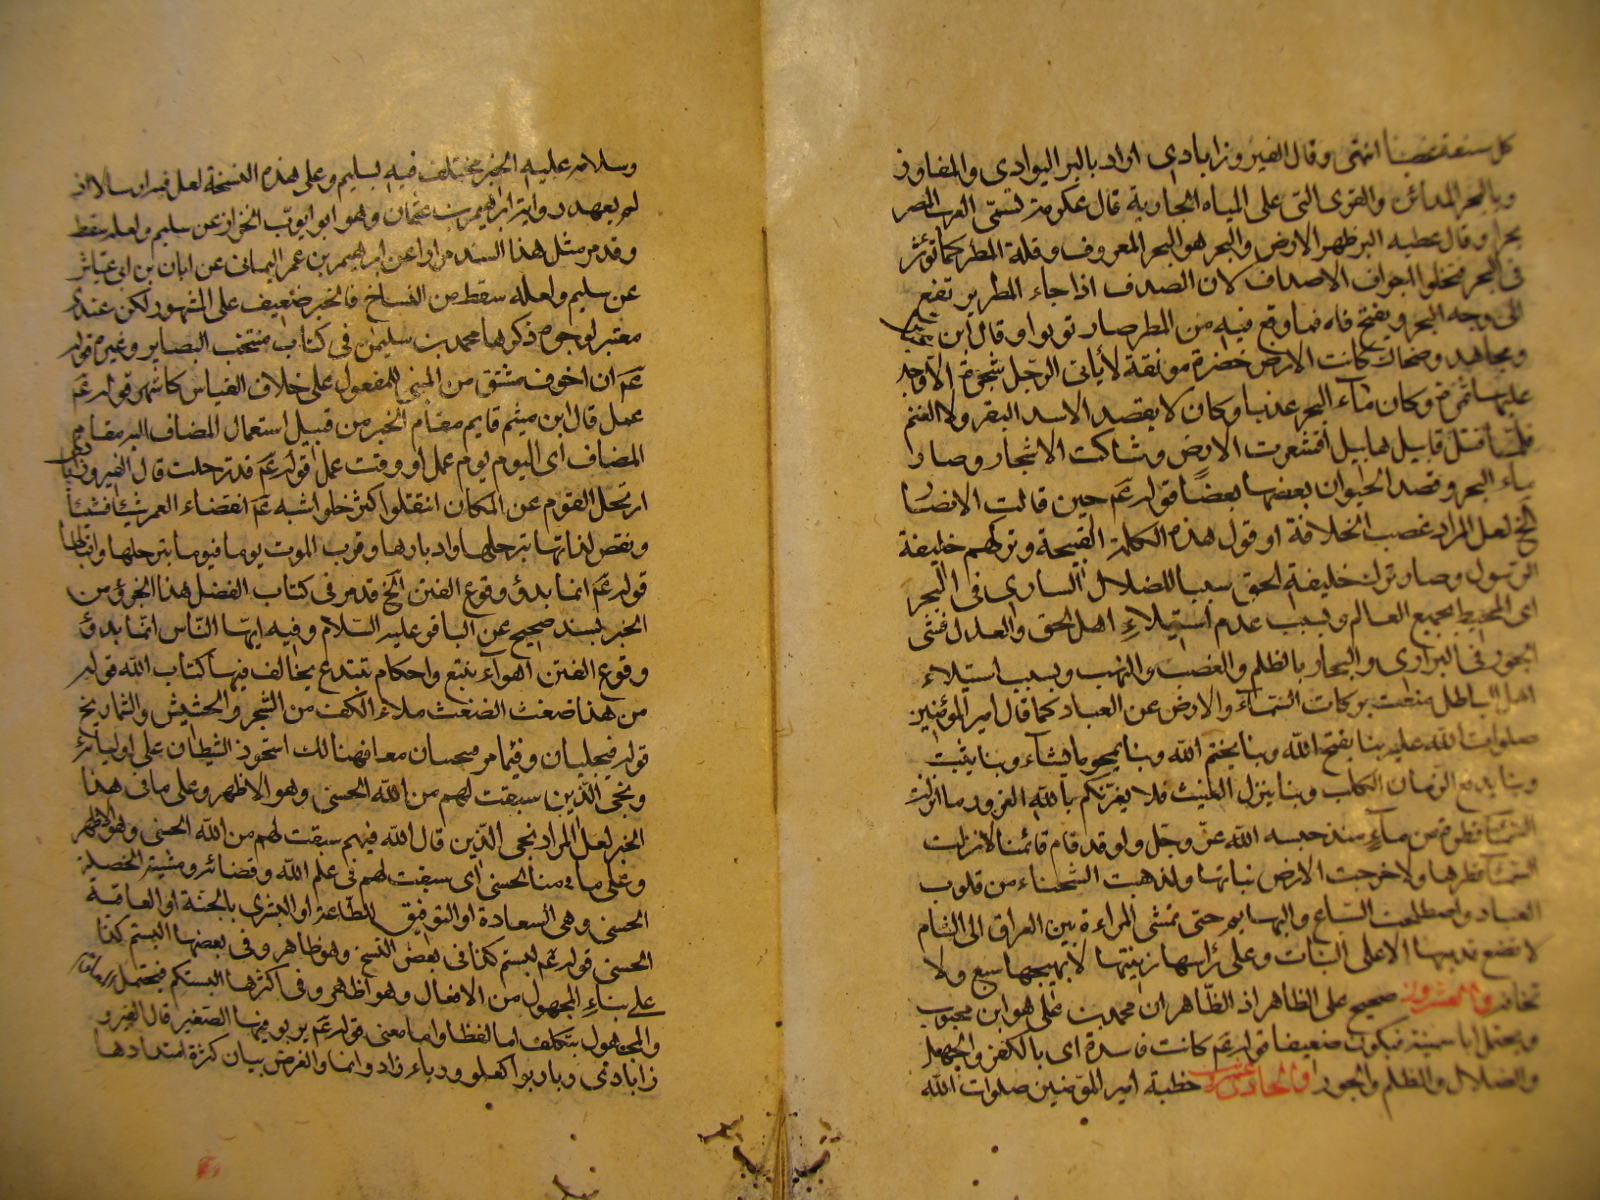 كل سنة قضبنا انتهى وقال الفيروزابادي اراد بالبر البوادي والمفاوز
وبالبحر المدائن والقرى التي على المياه الجارية قال عكرمة تسمى العرب المصر
بحرا وقال عطيه البر ظهر الارض والبحر هو البحر المعروف وقلة المطر كما تؤثر
في البحر فتخلوا اجواف الاصداف لان الصدف اذا جاء المطر يرتفع
الى وجه البحر ويفتح فاه فما وقع فيه من المطر صار لؤلؤا وقال ابن عباس
ومجاهد وضحاك كانت الارض خضرة مونقة لا ياتي الرجل شجرة الا وجد
عليها ثمرة وكان ماء البحر عذبا وكان لا يقصد الاسد البقر ولا الغنم
فلما قتل قابيل هابيل اقشعرت الارض وشاكت الاشجار وصار
ماء البحر وقصد الحيوان بعضها بعضا قوله ع‍م حين قالت الانصار
الخ لعل المراد غصب الخلافة او قول هذه الكلمة القبيحة وتركهم خليفة
الرسول وصار ترك خليفة الحق سببا للضلال الساري في البحر
اى المحيط بجميع العالم وبسبب عدم استيلاء اهل الحق والعدل فشى
الجور في البراري والبحار بالظلم والغصب والنهب وبسبب استيلاء
اهل الباطل منعت بركات السماء والارض عن العباد كما قال امير المؤمنين
صلوات الله عليه بنا يفتح الله وبنا يختم الله وبنا يمحو ما يشاء وبنا يثبت
وبنا يدفع الزمان الكلب وبنا ينزل الغيث فلا يغرنكم بالله الغرور ما انزلت
السماء قطرة من ماء منذ حبسه الله عز وجل ولو قد قام قائمنا لانزلت
السماء قطرها ولاخرجت الارض نباتها ولذهبت الشحناء من قلوب
العباد واصطلحت السباع والبهايم حتى تمشى المراءة بين العراق الى الشام
لا تضع قدميها الا على النبات وعلى رأسها زينتها لا يهيجها سبع ولا
تخافه والعشرون صحيح على الظاهر اذ الظاهر ان محمد بن على هو ابن محبوب
ويحتمل ابا سمينة فيكون ضعيفا قوله ع‍م كانت فاسدة اى بالكفر والجهل
والضلال والظلم والجور والحادى خطبة امير المؤمنين صلوات الله
وسلامه عليه الخبر مختلف فيه بسليم وعلى هذه النسخة لعل فيه ارسالا اذ
لم يعهد رواية ابراهيم بن عثمان وهو ابو ايوب الخزاز عن سليم ولعله سقط
وقد مر مثل هذا السند مرارا عن ابراهيم بن عمر اليمانى عن ابان بن ابى عياش
عن سليم ولعله سقط من النساخ فالخبر ضعيف على المشهور لكن عندى
معتبر لوجوه ذكرها محمد بن سليمن في كتاب منتخب البصاير وغيره قوله
ع‍م ان اخوف مشتق من المبنى للمفعول على خلاف القياس كاشهر قوله ع‍م
عمل قال ابن ميثم قايم مقام الخبر من قبيل استعمال المضاف اليه مقام
المضاف اى اليوم يوم عمل او وقت عمل قوله ع‍م قد ترحلت قال الفيروزابادى
ارتحل القوم عن المكان انتقلوا كترحلوا شبه ع‍م انقضاء العمر شيئا فشيئا
ونقص لذاتها بترحلها وادبارها وقرب الموت يوما فيوما بترحلها واقبالها
قوله ع‍م انما بدؤ وقوع الفتن الخ قد مر في كتاب الفضل هذا الجزؤ من
الخبر بسند صحيح عن الباقر عليه السلام وفيه ايها الناس انما بدؤ
وقوع الفتن اهواء تتبع واحكام تبتدع يخالف فيها كتاب الله قوله
من هذا ضغث الضغث ملاء الكف من الشجر والحشيش والشماريخ
قوله فيجليان وفيما مر فيجيئان معا فهنالك استحوذ الشيطان على اوليائه
ونجى الذين سبقت لهم من الله الحسنى وهو الاظهر وعلى ما في هذا
الخبر لعل المراد نجى الذين قال الله فيهم سبقت لهم من الله الحسنى وهو الاظهر
وعلى ما منا الحسنى اى سبقت لهم في علم الله وقضائه ومشيته الخصلة
الحسنى وهى السعادة او التوفيق للطاعة او البشرى بالجنة او العاقبة
الحسنى قوله ع‍م لبستم كذا في بعض النسخ وهو ظاهر وفي بعضها البستم كذا
على بناء المجهول من الافعال وهو اظهر وفي اكثرها البستكم فيحتمل
والمجهول بتكلف اما لفظا واما معنى قوله ع‍م يربو فيها الصغير قال الفيرو
زابادى ربا ربوا كعلو ورباء زاد ونما والغرض بيان كثرة امتدادها